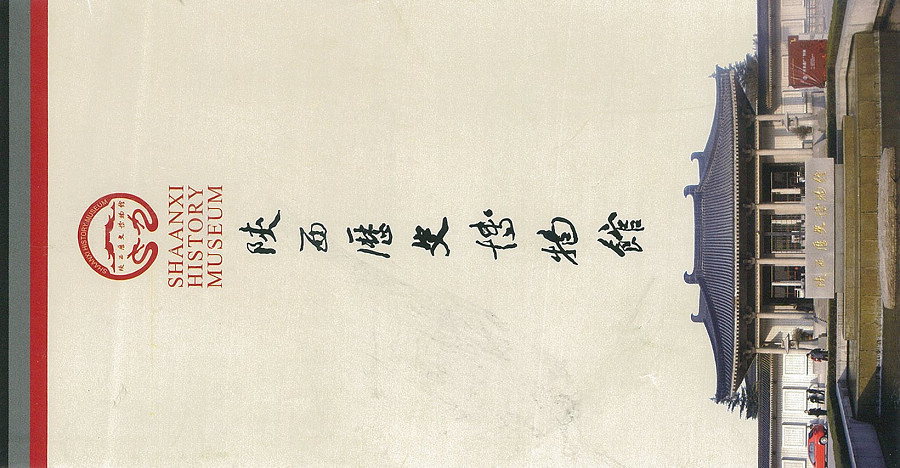 SHAANXI HISTORY MUSEUM
陕西歷史博物館
SHAANXI
HISTORY
MUSEUM
陕西歷史博物館
陕西歷史博物館